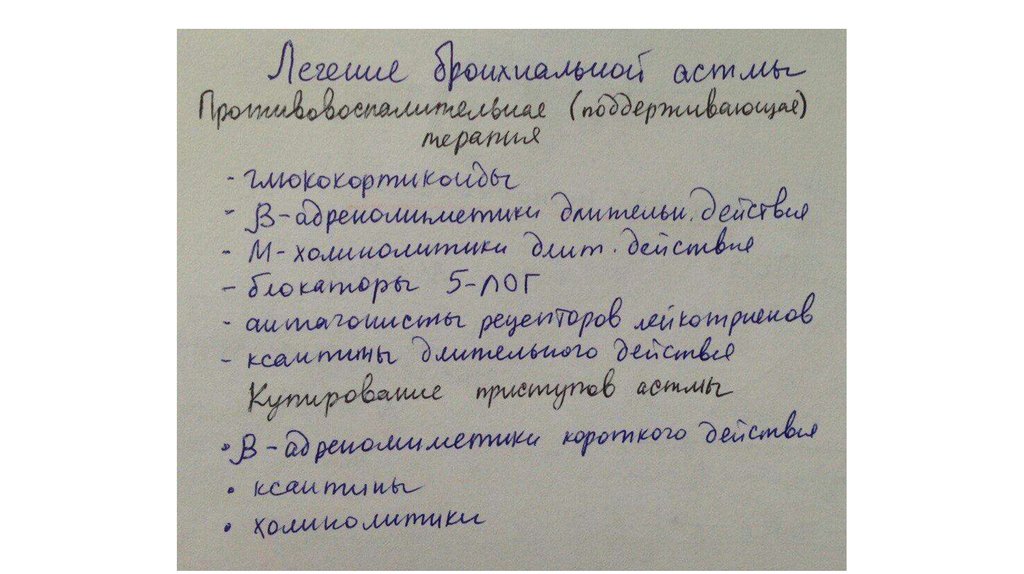 Лечение бронхиальной астмы
Противовоспалительная (поддерживающая)
терапия
- глюкокортикоиды
- β-адреномиметики длительн. действия
- М-холинолитики длит. действия
- блокаторы 5-ЛОГ
- антагонисты рецепторов лейкотриенов
- ксантины длительного действия
Купирование приступов астмы
• β-адреномиметики короткого действия
• ксантины
• холинолитики